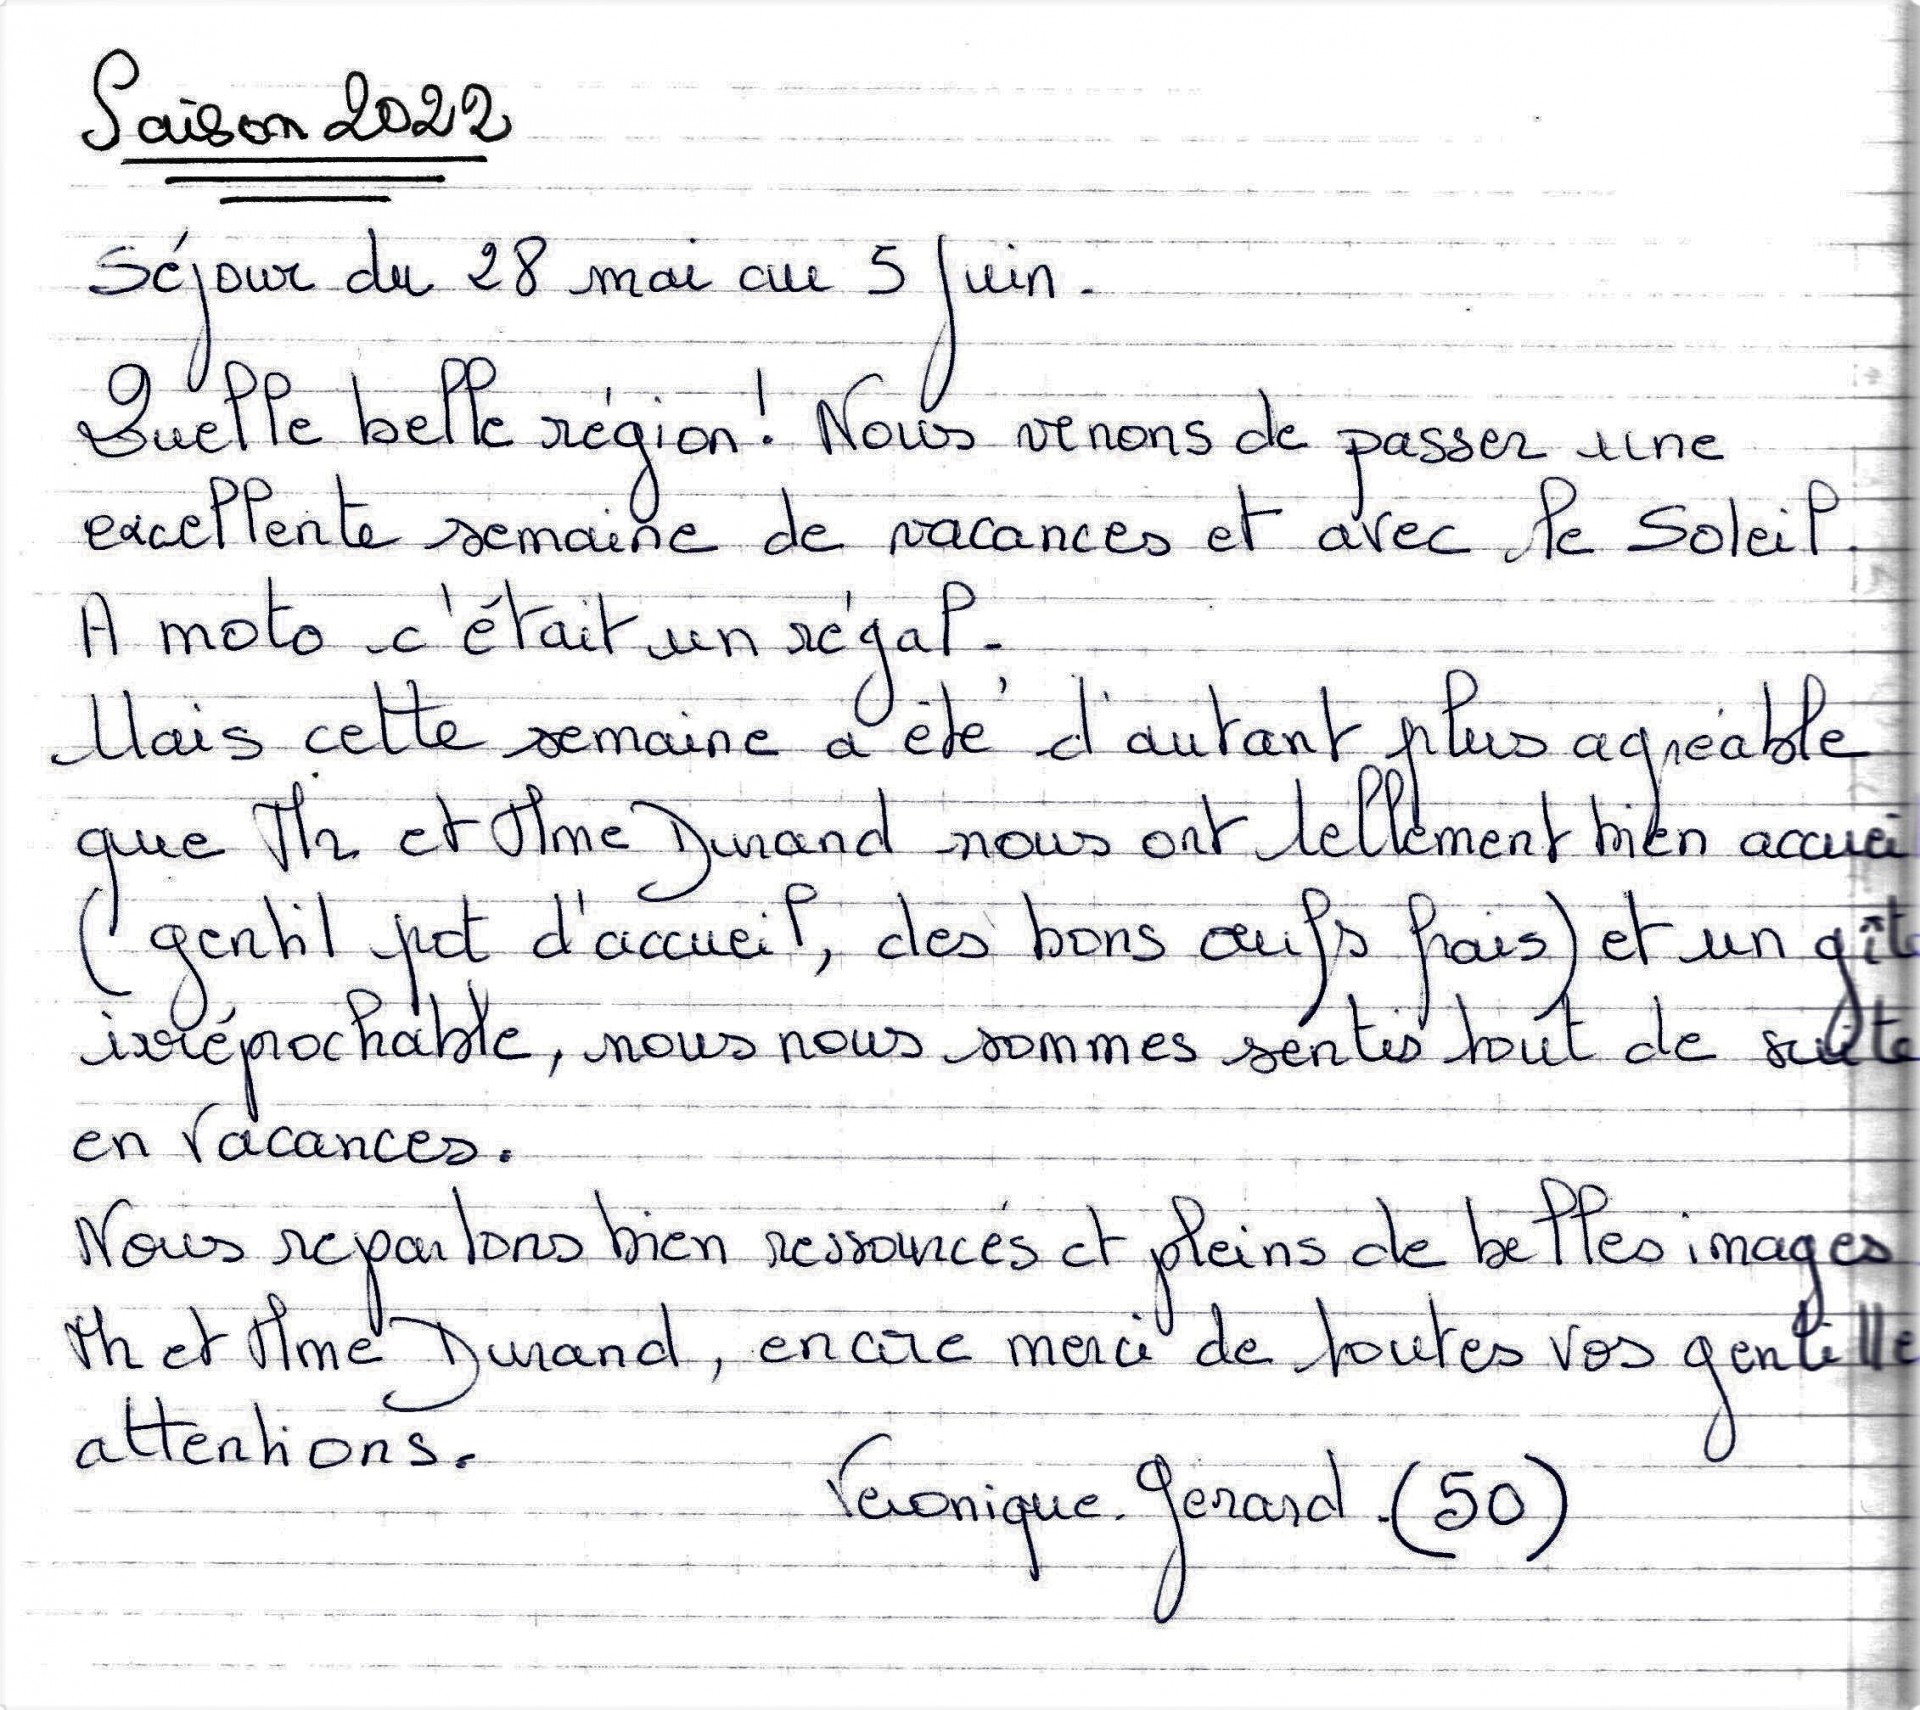 Saison 2022
Séjour du 28 mai au 5 Juin.
Quelle belle région! Nous venons de passer une
excellente semaine de vacances et avec le Soleil.
A moto c'était un régal.
Mais cette semaine a été d'autant plus agréable
que Mr et Mme Durand nous ont tellement bien accuei
(gentil pot d'accueil, des bons œufs frais) et un gîte
irréprochable, nous nous sommes sentis tout de suite
en vacances.
Nous repartons bien ressourcés et pleins de belles images
Mr et Mme Durand, encore merci de toutes vos gentille
attentions.
Veronique. Gérard. (50)